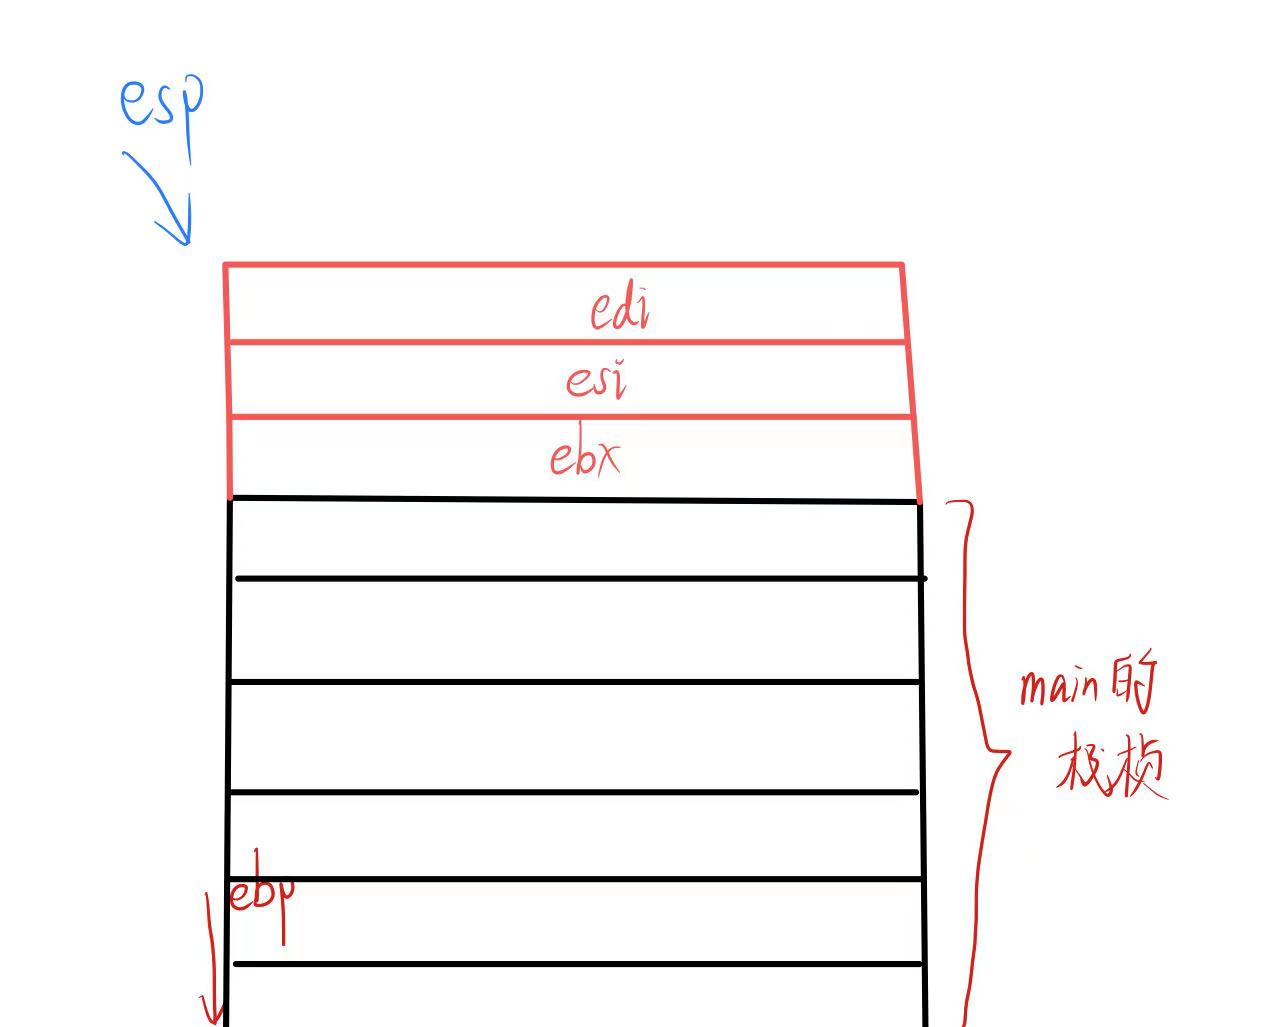 esp
edi
esi
ebx
main的
栈桢
ebp